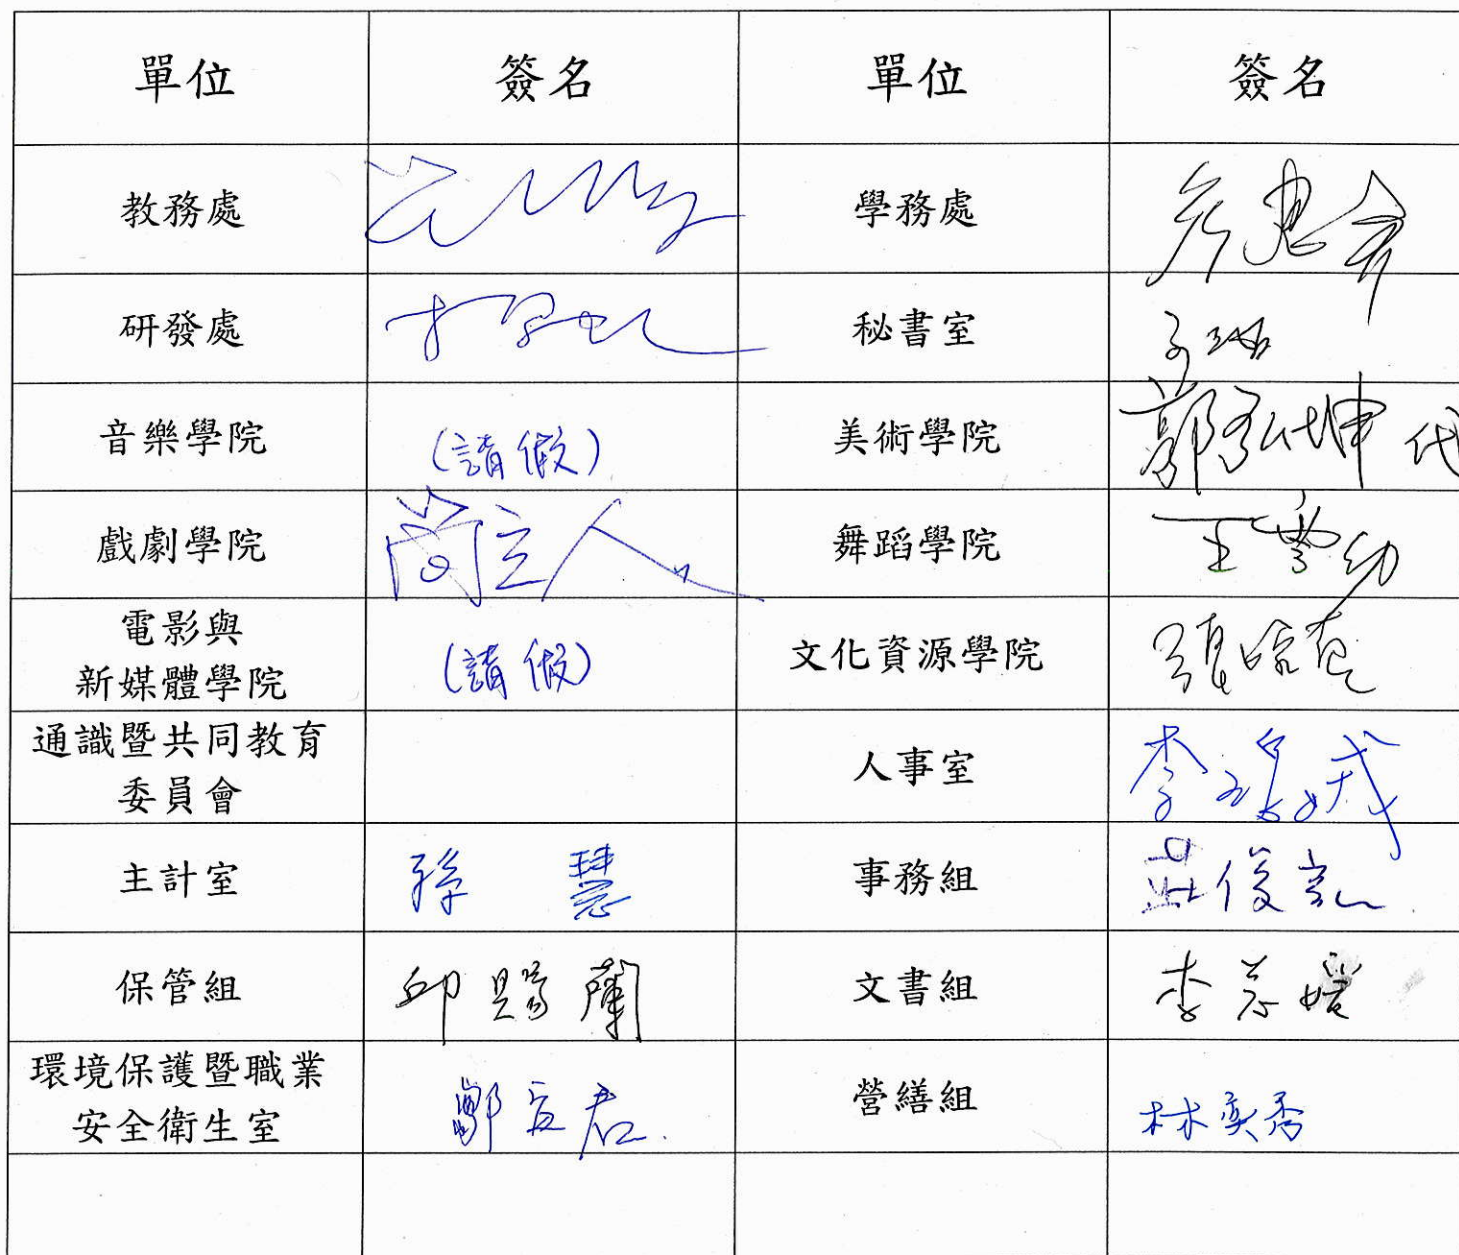 單位 簽名 單位 簽名
教務處 學務處
研發處 秘書室
音樂學院 (請假) 美術學院 郭弘坤 代
戲劇學院 尚立人 舞蹈學院 王雲幼
電影與
新媒體學院 (請假) 文化資源學院
通識暨共同教育
委員會 人事室 李
主計室 孫 慧 事務組 莊俊
保管組 邱賜蘭 文書組 李 媛
環境保護暨職業
安全衛生室 鄭宜君 營繕組 林奕秀